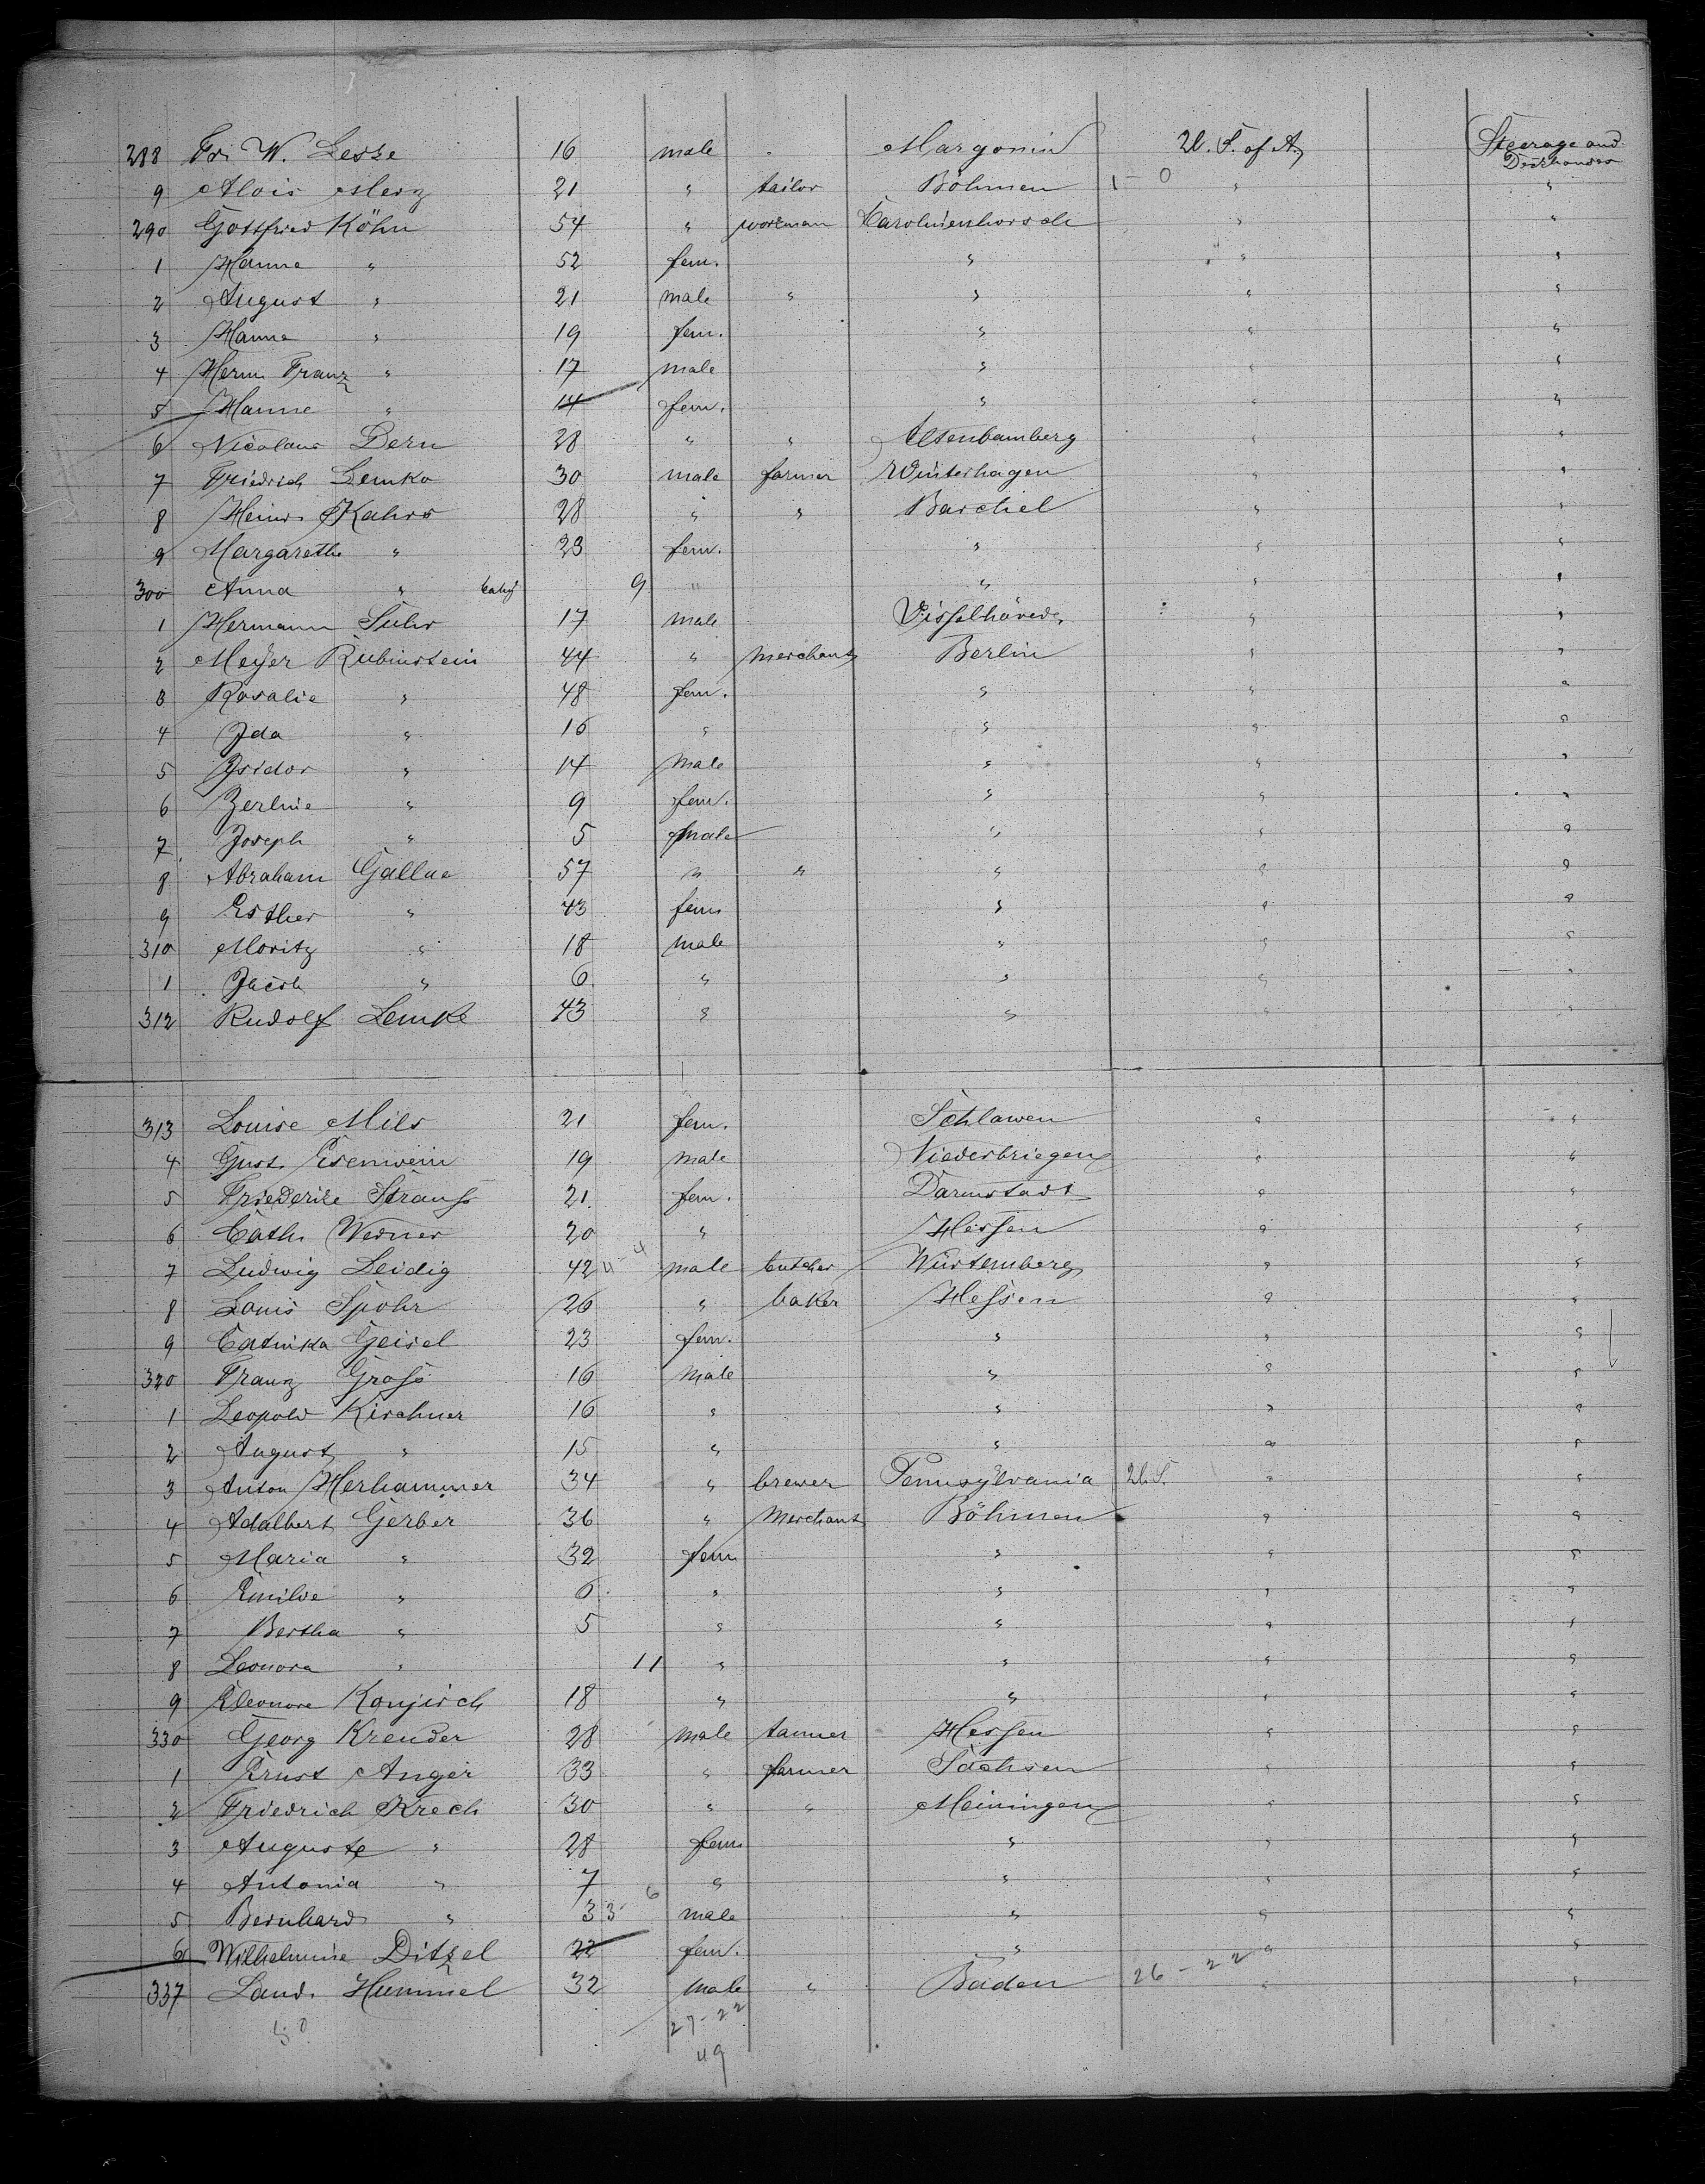 288 Fr. W. Leske 16 male " Margonin U. S. of A. Steerage and Deckhouses
9 Alois Merz 21 " tailor Böhmen 1-0 " "
290 Gottfried Köhn 54 " workman Carolinenhorsch " "
1 Hanne " 52 fem. " " "
2 August " 21 male " " " "
3 Hanne " 19 fem. " " "
4 Herm. Franz " 17 male " " "
5 Hanne " 14 fem. " " "
6 Nicolaus Dern 28 " " Altenbamberg " "
7 Friedrich Lemko 30 male farmer Winterhagen " "
8 Heinr. Kahrs 28 " " Barchel " "
9 Margarethe " 23 fem. " " "
300 Anna " baby 9 " " " "
1 Hermann Suhr 17 male Visselhövede " "
2 Meyer Rubinstein 44 " merchant Berlin " "
3 Rosalie " 48 fem. " " "
4 Ida " 16 " " " "
5 Isidor " 14 male " " "
6 Zerline " 9 fem. " " "
7 Joseph " 5 male " " "
8 Abraham Gallue 57 " " " " "
9 Esther " 43 fem " " "
310 Moritz " 18 male " " "
1 Jacob " 6 " " " "
312 Rudolf Lemke 43 " " " "
313 Louise Mils 21 fem. Schlawen " "
4 Gust. Esenwein 19 male Niederbriegen " "
5 Friederike Strauss 21. fem. Darmstadt " "
6 Cath. Werner 20 " Hessen " "
7 Ludwig Leidig 42 4-4 male butcher Würtemberg " "
8 Louis Spohr 26 " baker Hessen " "
9 Catinka Geisel 23 fem. " " "
320 Franz Gross 16 male " " "
1 Leopold Kirchner 16 " " " "
2 August " 15 " " " "
3 Anton Herhammer 34 " brewer Pennsylvania U.S. " "
4 Adalbert Gerber 36 " Merchant Böhmen " "
5 Maria " 32 fem " " "
6 Emilie " 6 " " " "
7 Bertha " 5 " " " "
8 Leonora " 11 " " " "
9 Eleonore Konjirch 18 " " " "
330 Georg Kreuder 28 male tanner Hessen " "
1 Ernst Anger 33 " farmer Sachsen " "
2 Friedrich Krech 30 " " Meiningen " "
3 Auguste " 28 fem " " "
4 Antonia " 7 " " " "
5 Bernhard " 3 3-6 male " " "
6 Wilhelmine Ditzel 22 fem. " " "
337 Land. Hummel 32 male " Baden 26-22 " "
50 27-22
49